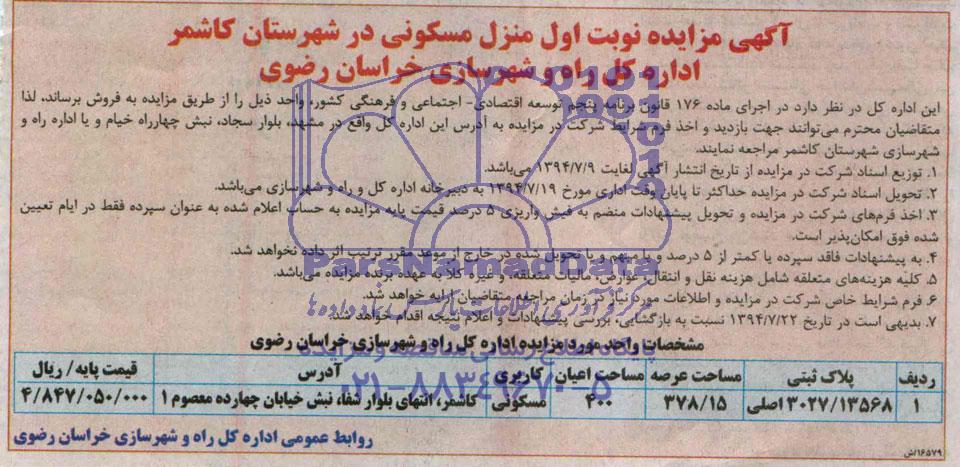 آگهی مزایده نوبت اول منزل مسکونی در شهرستان کاشمر
اداره کل راه و شهرسازی خراسان رضوی
این اداره کل در نظر دارد در اجرای ماده ۱۷۶ قانون برنامه پنجم توسعه اقتصادی- اجتماعی و فرهنگی کشور، واحد ذیل را از طریق مزایده به فروش برساند، لذا
متقاضیان محترم می‌توانند جهت بازدید و اخذ فرم شرایط شرکت در مزایده به آدرس این اداره کل واقع در مشهد، بلوار سجاد، نبش چهارراه خیام و یا اداره راه و
شهرسازی شهرستان کاشمر مراجعه نمایند.
۱. توزیع اسناد شرکت در مزایده از تاریخ انتشار آگهی لغایت ۱۳۹۴/۷/۹ می‌باشد.
۲. تحویل اسناد شرکت در مزایده حداکثر تا پایان وقت اداری مورخ ۱۳۹۴/۷/۱۹ به دبیرخانه اداره کل و راه و شهرسازی می‌باشد.
۳. اخذ فرم‌های شرکت در مزایده و تحویل پیشنهادات منضم به فیش واریزی ۵ درصد قیمت پایه مزایده به حساب اعلام شده به عنوان سپرده فقط در ایام تعیین
شده فوق امکان‌پذیر است.
۴. به پیشنهادات فاقد سپرده یا کمتر از ۵ درصد و یا مبهم و یا تحویل شده در خارج از موعد مقرر ترتیب اثر داده نخواهد شد.
۵. کلیه هزینه‌های متعلقه شامل هزینه نقل و انتقال، عوارض، مالیات متعلقه و غیره کلاً به عهده برنده مزایده می‌باشد.
۶. فرم شرایط خاص شرکت در مزایده و اطلاعات مورد نیاز در زمان مراجعه متقاضیان ارایه خواهد شد.
۷. بدیهی است در تاریخ ۱۳۹۴/۷/۲۲ نسبت به بازگشایی، بررسی پیشنهادات و اعلام نتیجه اقدام خواهد شد.
مشخصات واحد مورد مزایده اداره کل راه و شهرسازی خراسان رضوی
ردیف پلاک ثبتی مساحت عرصه مساحت اعیان کاربری آدرس قیمت پایه/ ریال
۱ ۳۰۲۷/۱۳۵۶۸ اصلی ۳۷۸/۱۵ ۴۰۰ مسکونی کاشمر، انتهای بلوار شفا، نبش خیابان چهارده معصوم ۱ ۴/۸۴۷/۰۵۰/۰۰۰
روابط عمومی اداره کل راه و شهرسازی خراسان رضوی
۱۶۵۷۹/ش
ParsNamadData
۰۲۱-۸۸۳۴۹۶۷۰-۵